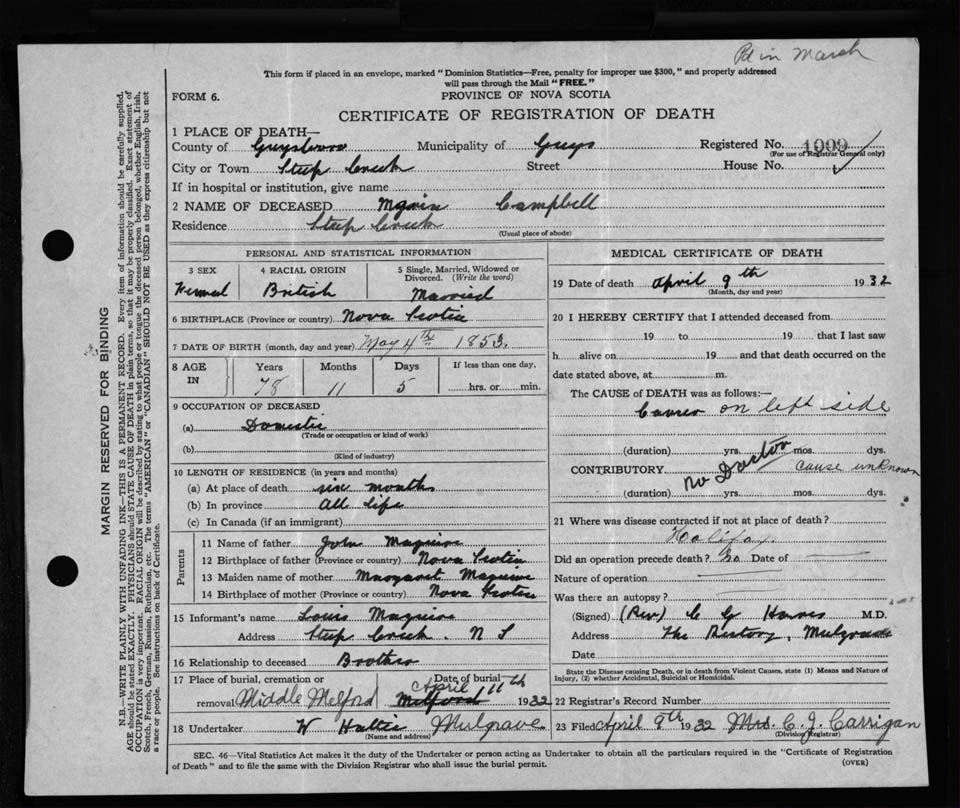 Pd in March
This form if placed in an envelope, marked "Dominion Statistics—Free, penalty for improper use $300," and properly addressed
will pass through the Mail "FREE."
FORM 6.
PROVINCE OF NOVA SCOTIA
CERTIFICATE OF REGISTRATION OF DEATH
1 PLACE OF DEATH—
County of Guysboro Municipality of Guys Registered No. 1099
(For use of Registrar General only)
City or Town Steep Creek Street House No.
If in hospital or institution, give name
2 NAME OF DECEASED Campbell
Residence Steep Creek
(Usual place of abode)
MARGIN RESERVED FOR BINDING
N.B.—WRITE PLAINLY WITH UNFADING INK—THIS IS A PERMANENT RECORD. Every item of information should be carefully supplied.
AGE should be stated EXACTLY. PHYSICIANS should STATE CAUSE OF DEATH in plain terms, so that it may be properly classified. Exact statement of
OCCUPATION is very important. RACIAL ORIGIN will be described by stating to what people or tongue the deceased person belonged, whether English, Irish,
Scotch, French, German, Russian, Ruthenian, etc. The terms "AMERICAN" or "CANADIAN" SHOULD NOT BE USED as they express citizenship but not
a race or people. See instructions on back of Certificate.
PERSONAL AND STATISTICAL INFORMATION
3 SEX
4 RACIAL ORIGIN British
5 Single, Married, Widowed or
Divorced. (Write the word)
Married
6 BIRTHPLACE (Province or country) Nova Scotia
7 DATE OF BIRTH (month, day and year) May 4th 1853.
8 AGE IN Years Months Days If less than one day,
78 11 5 hrs. or min.
9 OCCUPATION OF DECEASED
(a) Domestic
(Trade or occupation or kind of work)
(b)
(Kind of industry)
10 LENGTH OF RESIDENCE (in years and months)
(a) At place of death six months
(b) In province All Life
(c) In Canada (if an immigrant)
Parents
11 Name of father John Maguire
12 Birthplace of father (Province or country) Nova Scotia
13 Maiden name of mother Margaret Maguire
14 Birthplace of mother (Province or country) Nova Scotia
15 Informant's name Louis Maguire
Address Steep Creek. N S
16 Relationship to deceased Brother
17 Place of burial, cremation or Date of burial
removal Middle Melford Milford April 11th 1932
18 Undertaker W Hattie Mulgrave
(Name and address)
MEDICAL CERTIFICATE OF DEATH
19 Date of death April 9th 1932
(Month, day and year)
20 I HEREBY CERTIFY that I attended deceased from
19 to 19 that I last saw
h alive on 19 and that death occurred on the
date stated above, at m.
The CAUSE of DEATH was as follows:—
Cancer on left side
(duration) yrs. mos. dys.
CONTRIBUTORY No Doctor cause unknown
(duration) yrs. mos. dys.
21 Where was disease contracted if not at place of death?
Halifax.
Did an operation precede death? Date of
Nature of operation
Was there an autopsy?
(Signed) (Rev) C G M.D.
Address The Rectory, Mulgrave
Date
State the Disease causing Death, or in death from Violent Causes, state (1) Means and Nature of
Injury, (2) whether Accidental, Suicidal or Homicidal.
22 Registrar's Record Number
23 Filed April 9th 1932 Mrs. C. J. Carrigan
(Division Registrar)
SEC. 46—Vital Statistics Act makes it the duty of the Undertaker or person acting as Undertaker to obtain all the particulars required in the "Certificate of Registration
of Death" and to file the same with the Division Registrar who shall issue the burial permit.
(OVER)